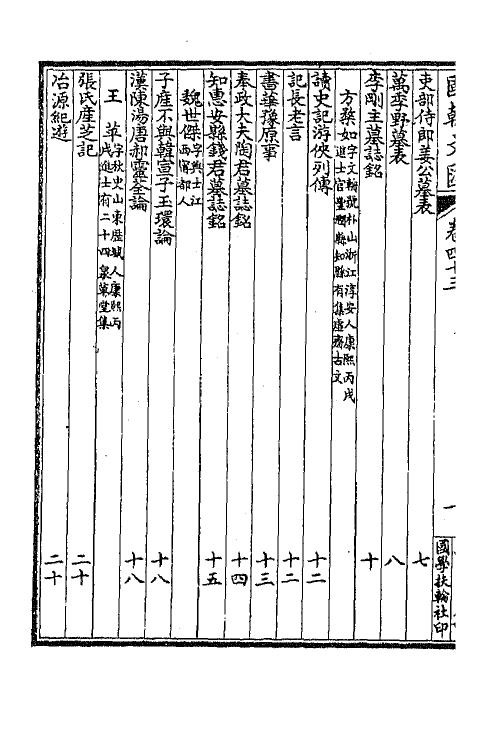 國朝文匯
卷四十三
一
國學扶輪社印
吏部侍郎姜公墓表 七
萬季野墓表 八
李剛主墓誌銘 十
方楘如 字文輈號朴山浙江淳安人康熙丙戌
進士官豐潤縣知縣有集虛齋古文
讀史記游俠列傳 十二
記長老言 十二
書蘗豫原事 十三
奉政大夫陶君墓誌銘 十四
知惠安縣錢君墓誌銘 十五
魏世傑 字興士江
西甯都人
子産不與韓宣子玉環論 十八
漢陳湯唐郝靈荃論 十八
王苹 字秋史山東歷城人康熙丙
戌進士有二十四泉草堂集
張氏産芝記 二十
冶源紀遊 二十